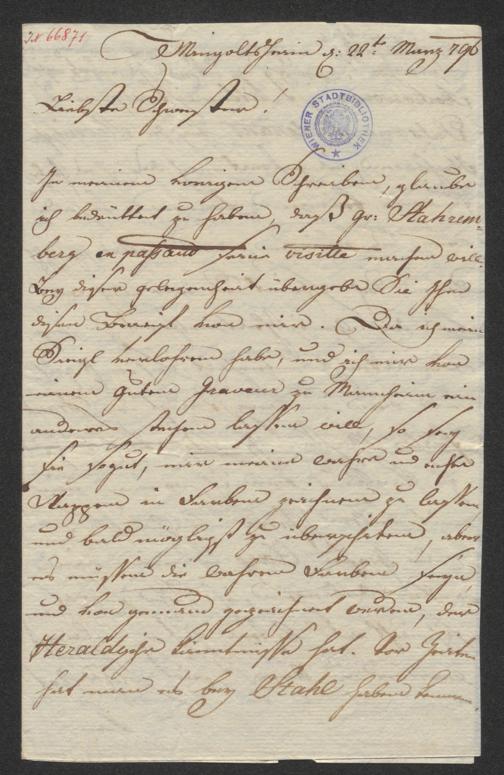 I.N 66871
Mingoltsheim d: 22t: Merz 796
Liebste Schwester!
WIENER STADTBIBLIOTHEK
In meinem vorigen Schreiben, glaube
ich bedeuttet zu haben, daß gr: Stahrem-
berg en passand seine visitte machen will.
Bey dieser gelegenheit übergebe Sie Ihm
diesen Brief von mir. Da ich mein
Siegl verlohren habe, und ich mir von
einem guten Graveur zu Mannheim ein
anderes stechen lassen will, so sey
Sie so gut, mir meine wahre und
Wappen in Farben zeichnen zu lassen
und bald möglichst zu überschicken, aber
es müssen die wahren Farben seyn,
und von jemand gezeichnet werden, der
Heraldische kenntnisse hat. Vor Zeiten
hat man es bey Stahl haben können.